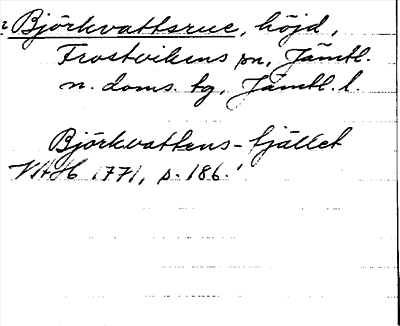 ? Björkvattsrue, höjd,
Frostvikens sn, Jämtl.
n. doms. tg, Jämtl. l.
Björkvattens-fjället
VAH 1771, p. 186.